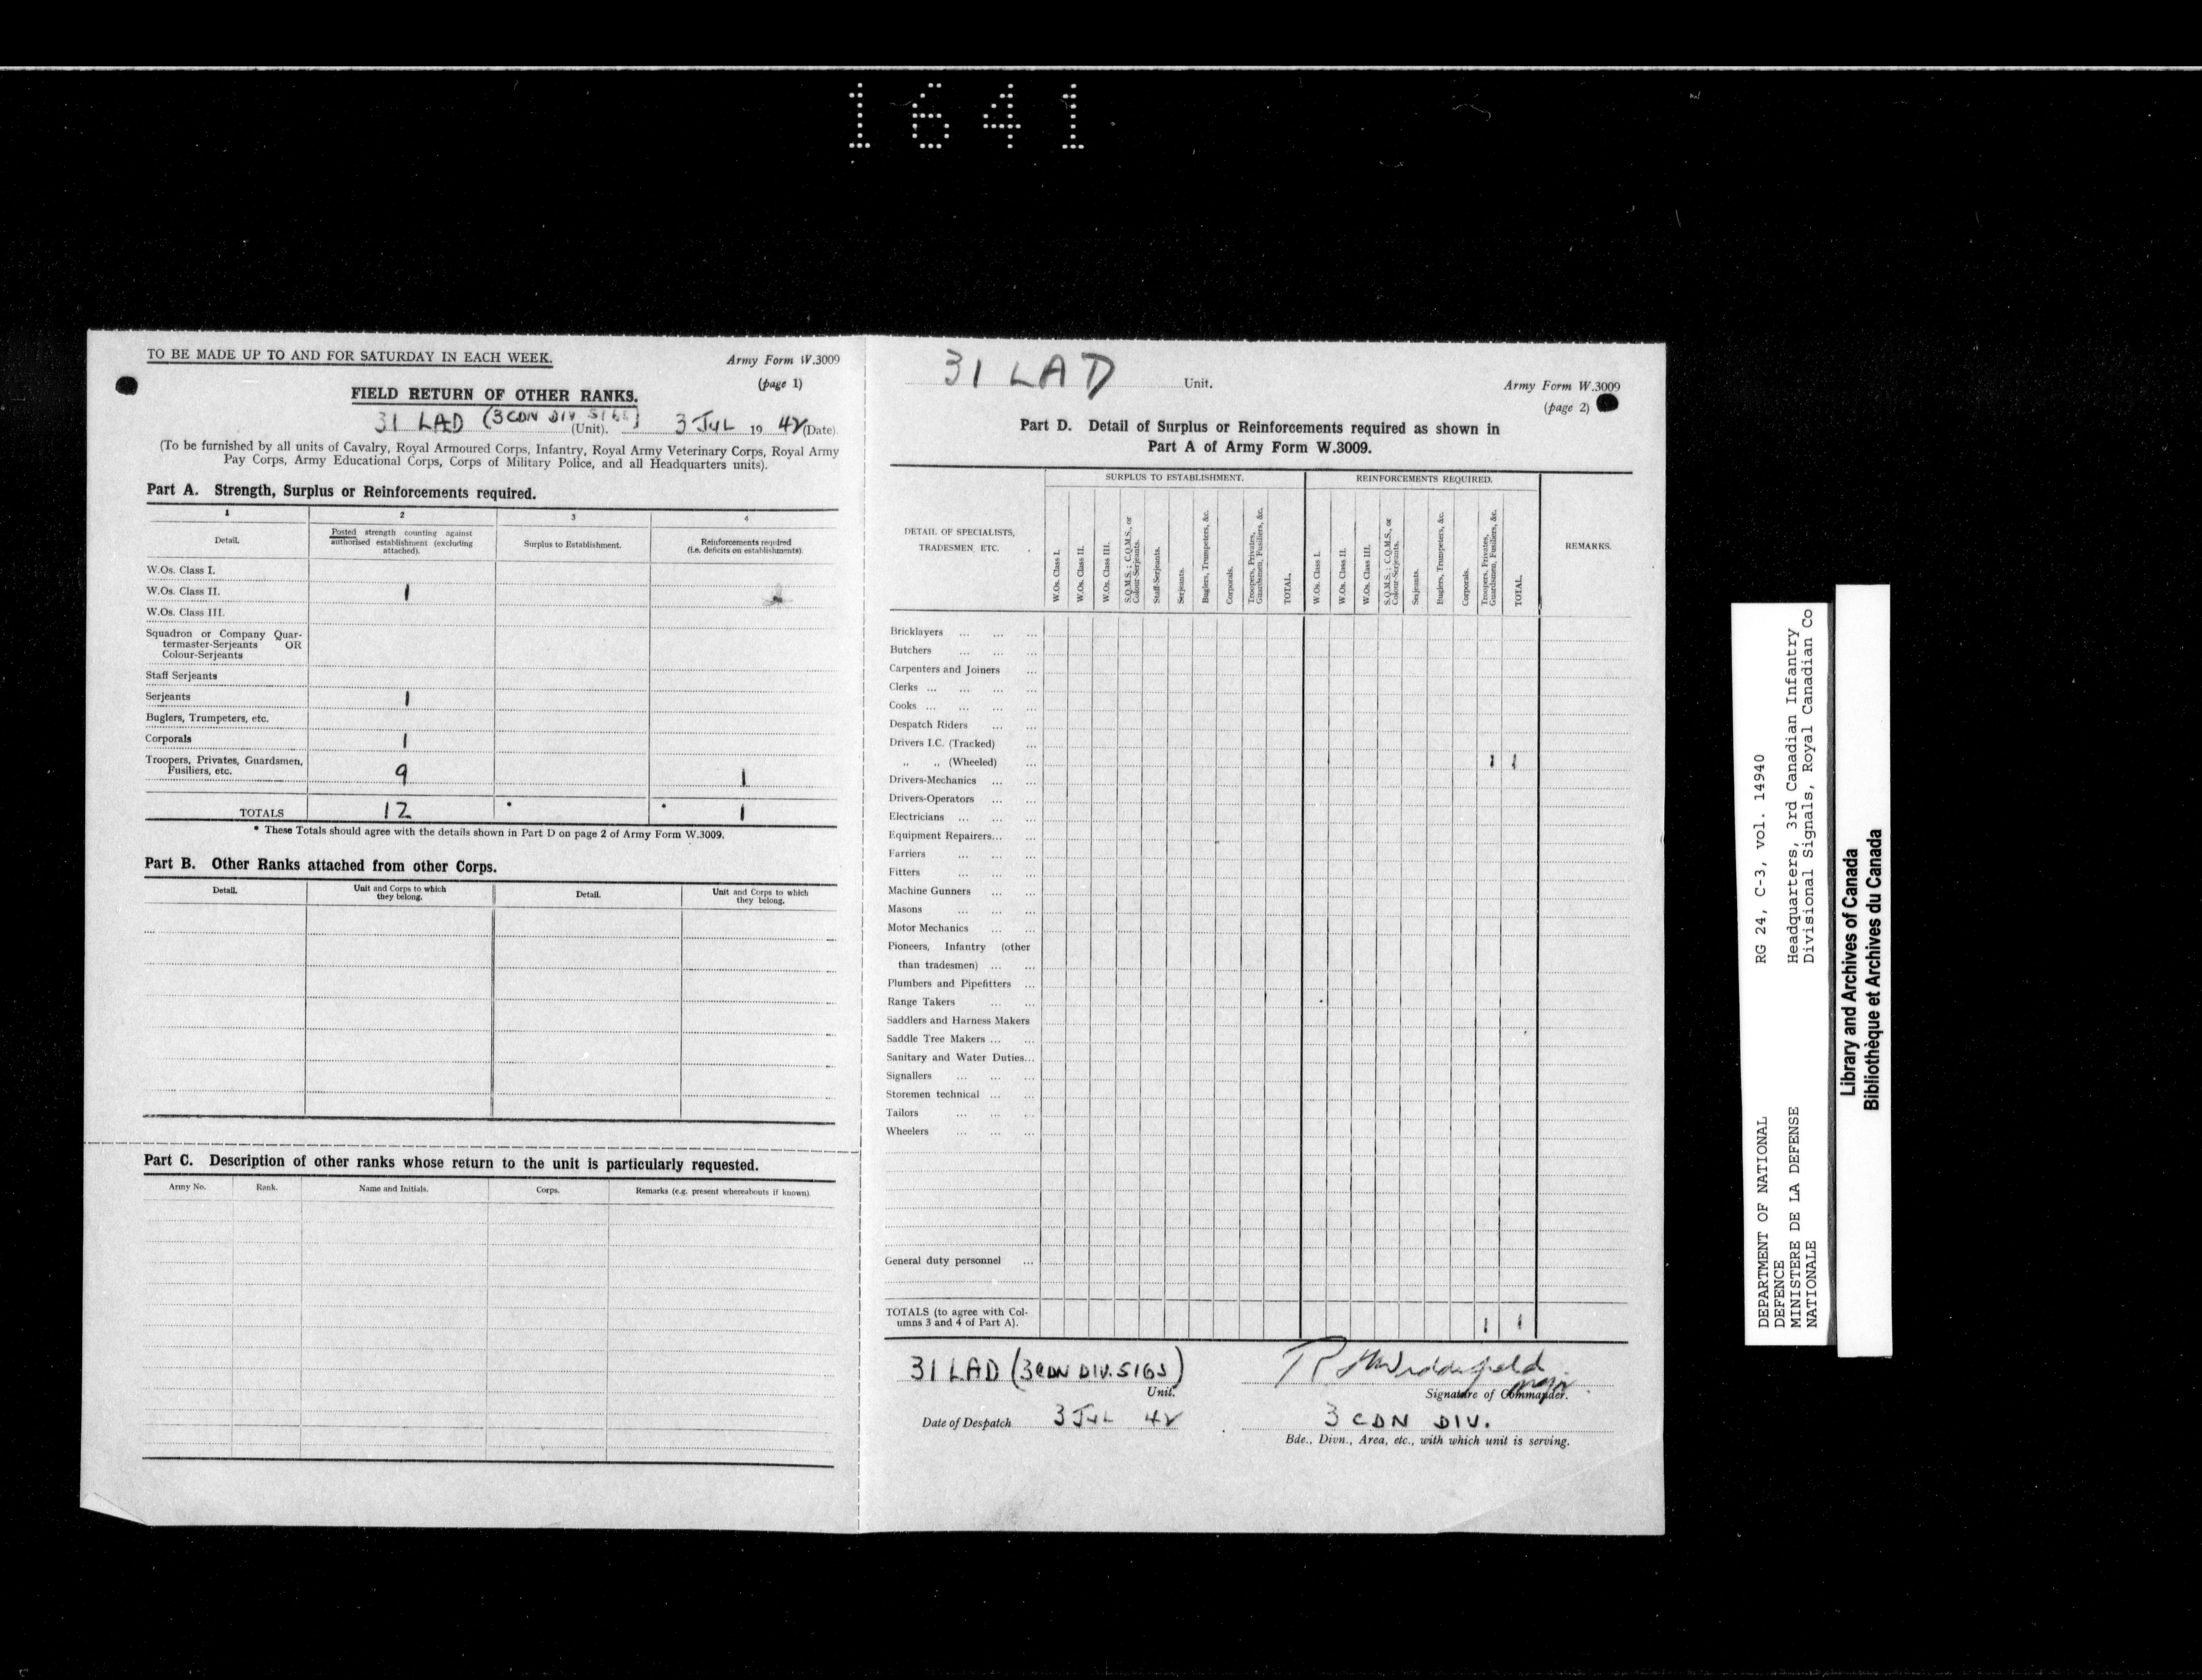 1641
TO BE MADE UP TO AND FOR SATURDAY IN EACH WEEK.
Army Form W.3009
(page 1)
FIELD RETURN OF OTHER RANKS.
31 LAD (3 CDN DIV SIGS) (Unit). 3 JUL 19 42 (Date)
(To be furnished by all units of Cavalry, Royal Armoured Corps, Infantry, Royal Army Veterinary Corps, Royal Army
Pay Corps, Army Educational Corps, Corps of Military Police, and all Headquarters units).
Part A. Strength, Surplus or Reinforcements required.
1 2 3 4
Detail. Posted strength counting against authorised establishment (excluding attached). Surplus to Establishment. Reinforcements required (i.e. deficits on establishments).
W.Os. Class I.
W.Os. Class II. 1
W.Os. Class III.
Squadron or Company Quar-
termaster-Serjeants OR
Colour-Serjeants
Staff Serjeants
Serjeants 1
Buglers, Trumpeters, etc.
Corporals 1
Troopers, Privates, Guardsmen,
Fusiliers, etc. 9 1
TOTALS 12 * * 1
* These Totals should agree with the details shown in Part D on page 2 of Army Form W.3009.
Part B. Other Ranks attached from other Corps.
Detail. Unit and Corps to which they belong. Detail. Unit and Corps to which they belong.
Part C. Description of other ranks whose return to the unit is particularly requested.
Army No. Rank. Name and Initials. Corps. Remarks (e.g. present whereabouts if known).
31 LAD Unit.
Army Form W.3009
(page 2)
Part D. Detail of Surplus or Reinforcements required as shown in
Part A of Army Form W.3009.
DETAIL OF SPECIALISTS,
TRADESMEN, ETC.
SURPLUS TO ESTABLISHMENT.
W.Os. Class I.
W.Os. Class II.
W.Os. Class III.
S.Q.M.S.; C.Q.M.S., or Colour-Serjeants.
Staff-Serjeants.
Serjeants.
Buglers, Trumpeters, &c.
Corporals.
Troopers, Privates, Guardsmen, Fusiliers, &c.
TOTAL.
REINFORCEMENTS REQUIRED.
W.Os. Class I.
W.Os. Class II.
W.Os. Class III.
S.Q.M.S.; C.Q.M.S., or Colour-Serjeants.
Serjeants.
Buglers, Trumpeters, &c.
Corporals.
Troopers, Privates, Guardsmen, Fusiliers, &c.
TOTAL.
REMARKS.
Bricklayers ... ... ...
Butchers ... ... ...
Carpenters and Joiners ...
Clerks ... ... ... ...
Cooks ... ... ... ...
Despatch Riders ... ...
Drivers I.C. (Tracked) ...
„ „ (Wheeled) ... 1 1
Drivers-Mechanics ... ...
Drivers-Operators ... ...
Electricians ... ... ...
Equipment Repairers... ...
Farriers ... ... ...
Fitters ... ... ...
Machine Gunners ... ...
Masons ... ... ...
Motor Mechanics ... ...
Pioneers, Infantry (other
than tradesmen) ... ...
Plumbers and Pipefitters ...
Range Takers ... ...
Saddlers and Harness Makers
Saddle Tree Makers ... ...
Sanitary and Water Duties...
Signallers ... ... ...
Storemen technical ... ...
Tailors ... ... ...
Wheelers ... ... ...
General duty personnel ...
TOTALS (to agree with Col-
umns 3 and 4 of Part A). 1 1
31 LAD (3 CDN DIV. SIGS)
Unit.
Signature of Commander.
Date of Despatch 3 JUL 42
3 CDN DIV.
Bde., Divn., Area, etc., with which unit is serving.
DEPARTMENT OF NATIONAL
DEFENCE
MINISTERE DE LA DEFENSE
NATIONALE
RG 24, C-3, vol. 14940
Headquarters, 3rd Canadian Infantry
Divisional Signals, Royal Canadian Co
Library and Archives of Canada
Bibliothèque et Archives du Canada